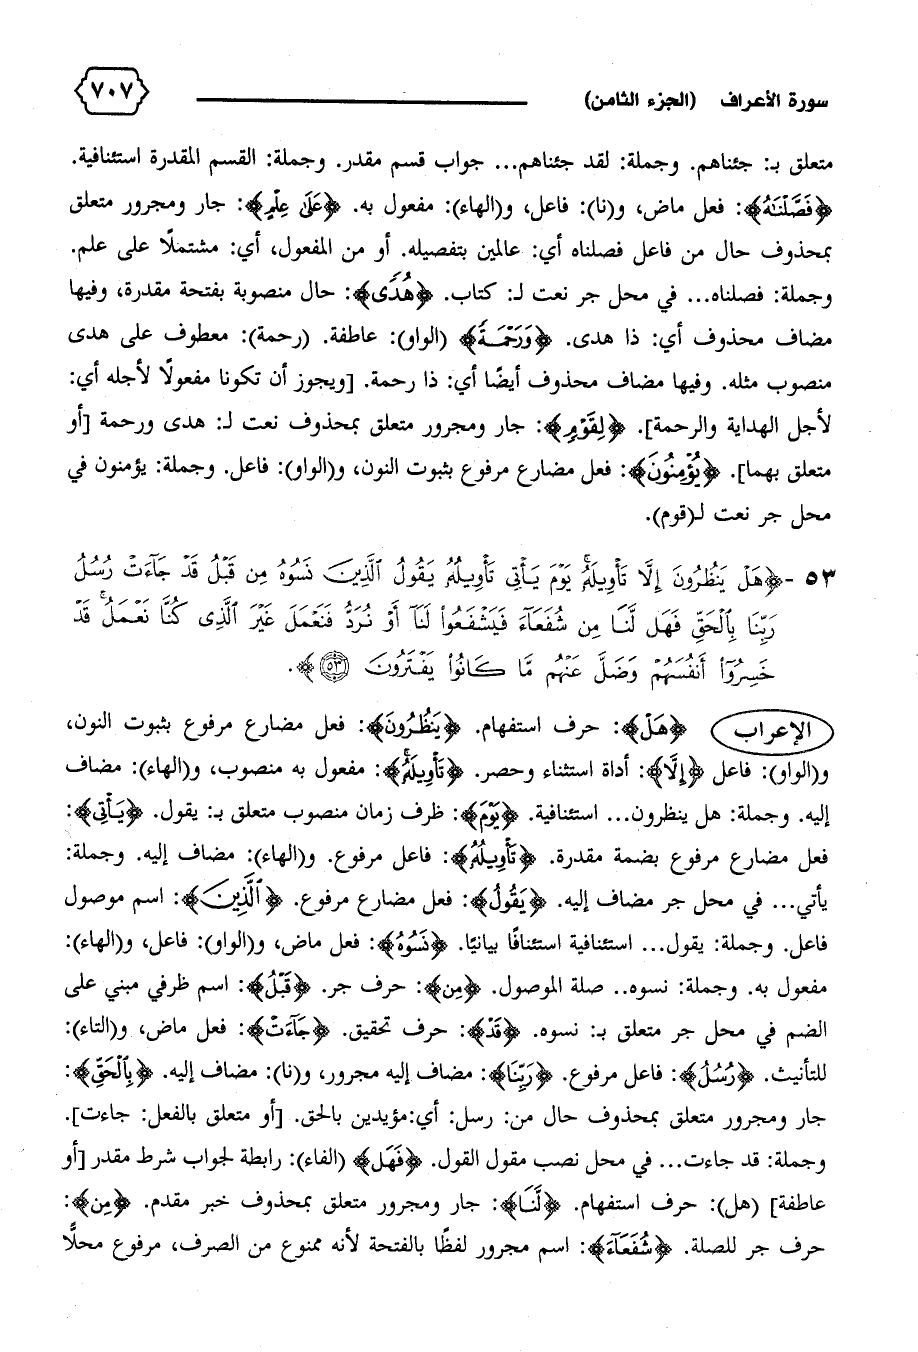 سورة الأعراف (الجزء الثامن) ٧٠٧
متعلق بـ: جئناهم. وجملة: لقد جئناهم... جواب قسم مقدر. وجملة: القسم المقدرة استئنافية.
﴿فَصَّلْنَٰهُ﴾: فعل ماض، و(نا): فاعل، و(الهاء): مفعول به. ﴿عَلَىٰ عِلْمٍ﴾: جار ومجرور متعلق
بمحذوف حال من فاعل فصلناه أي: عالمين بتفصيله. أو من المفعول، أي: مشتملًا على علم.
وجملة: فصلناه... في محل جر نعت لـ: كتاب. ﴿هُدًى﴾: حال منصوبة بفتحة مقدرة، وفيها
مضاف محذوف أي: ذا هدى. ﴿وَرَحْمَةً﴾ (الواو): عاطفة. (رحمة): معطوف على هدى
منصوب مثله. وفيها مضاف محذوف أيضًا أي: ذا رحمة. [ويجوز أن تكونا مفعولًا لأجله أي:
لأجل الهداية والرحمة]. ﴿لِقَوْمٍ﴾: جار ومجرور متعلق بمحذوف نعت لـ: هدى ورحمة [أو
متعلق بهما]. ﴿يُؤْمِنُونَ﴾: فعل مضارع مرفوع بثبوت النون، و(الواو): فاعل. وجملة: يؤمنون في
محل جر نعت لـ(قوم).
٥٣ -﴿هَلْ يَنظُرُونَ إِلَّا تَأْوِيلَهُۥ ۚ يَوْمَ يَأْتِى تَأْوِيلُهُۥ يَقُولُ ٱلَّذِينَ نَسُوهُ مِن قَبْلُ قَدْ جَآءَتْ رُسُلُ
رَبِّنَا بِٱلْحَقِّ فَهَل لَّنَا مِن شُفَعَآءَ فَيَشْفَعُوا۟ لَنَآ أَوْ نُرَدُّ فَنَعْمَلَ غَيْرَ ٱلَّذِى كُنَّا نَعْمَلُ ۚ قَدْ
خَسِرُوٓا۟ أَنفُسَهُمْ وَضَلَّ عَنْهُم مَّا كَانُوا۟ يَفْتَرُونَ ﴿٥٣﴾﴾.
الإعراب ﴿هَلْ﴾: حرف استفهام. ﴿يَنظُرُونَ﴾: فعل مضارع مرفوع بثبوت النون،
و(الواو): فاعل ﴿إِلَّا﴾: أداة استثناء وحصر. ﴿تَأْوِيلَهُۥ ۚ﴾: مفعول به منصوب، و(الهاء): مضاف
إليه. وجملة: هل ينظرون... استئنافية. ﴿يَوْمَ﴾: ظرف زمان منصوب متعلق بـ: يقول. ﴿يَأْتِى﴾:
فعل مضارع مرفوع بضمة مقدرة. ﴿تَأْوِيلُهُۥ﴾: فاعل مرفوع. و(الهاء): مضاف إليه. وجملة:
يأتي... في محل جر مضاف إليه. ﴿يَقُولُ﴾: فعل مضارع مرفوع. ﴿ٱلَّذِينَ﴾: اسم موصول
فاعل. وجملة: يقول... استئنافية استئنافًا بيانيًا. ﴿نَسُوهُ﴾: فعل ماض، و(الواو): فاعل، و(الهاء):
مفعول به. وجملة: نسوه.. صلة الموصول. ﴿مِن﴾: حرف جر. ﴿قَبْلُ﴾: اسم ظرفي مبني على
الضم في محل جر متعلق بـ: نسوه. ﴿قَدْ﴾: حرف تحقيق. ﴿جَآءَتْ﴾: فعل ماض، و(التاء):
للتأنيث. ﴿رُسُلُ﴾: فاعل مرفوع. ﴿رَبِّنَا﴾: مضاف إليه مجرور، و(نا): مضاف إليه. ﴿بِٱلْحَقِّ﴾:
جار ومجرور متعلق بمحذوف حال من: رسل: أي:مؤيدين بالحق. [أو متعلق بالفعل: جاءت].
وجملة: قد جاءت... في محل نصب مقول القول. ﴿فَهَل﴾ (الفاء): رابطة لجواب شرط مقدر [أو
عاطفة] (هل): حرف استفهام. ﴿لَّنَا﴾: جار ومجرور متعلق بمحذوف خبر مقدم. ﴿مِن﴾:
حرف جر للصلة. ﴿شُفَعَآءَ﴾: اسم مجرور لفظًا بالفتحة لأنه ممنوع من الصرف، مرفوع محلًّا